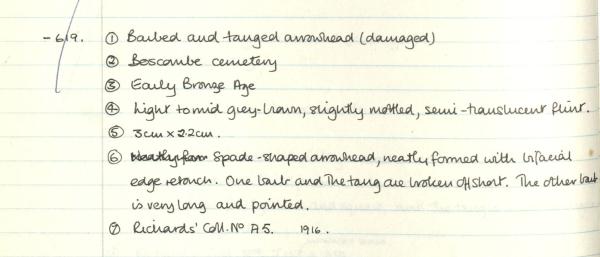 - 619. ① Barbed and tanged arrowhead (damaged)
② Boscombe cemetery
③ Early Bronze Age
④ Light to mid grey-brown, slightly mottled, semi-translucent flint.
⑤ 3cm x 2.2cm.
⑥ Neatly form Spade-shaped arrowhead, neatly formed with bifacial
edge retouch. One barb and the tang are broken off short. The other barb
is very long and pointed.
⑦ Richards' Coll. No A5. 1916.